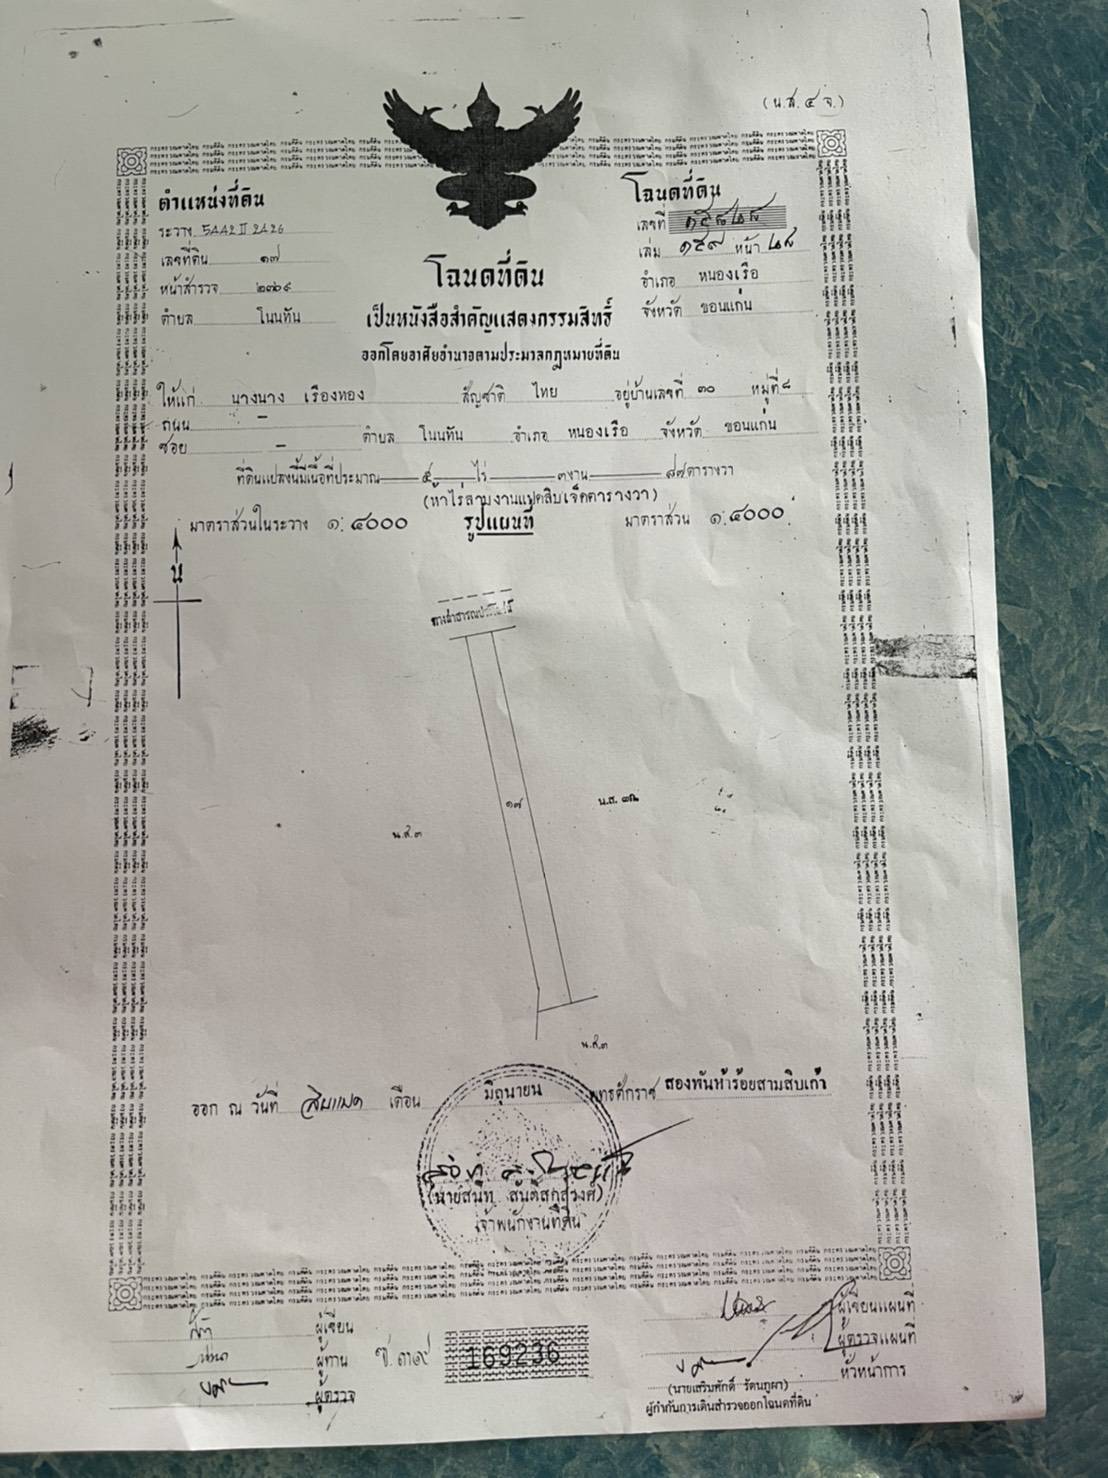 (น.ส.๔ จ.)
ตำแหน่งที่ดิน
ระวาง 5442 II 2426
เลขที่ดิน ๑๗
หน้าสำรวจ ๒๓๖๙
ตำบล โนนทัน
โฉนดที่ดิน
เลขที่ ๑๕๘๒๘
เล่ม ๑๕๙ หน้า ๒๘
อำเภอ หนองเรือ
จังหวัด ขอนแก่น
โฉนดที่ดิน
เป็นหนังสือสำคัญแสดงกรรมสิทธิ์
ออกโดยอาศัยอำนาจตามประมวลกฎหมายที่ดิน
ให้แก่ นางนาง เรืองทอง สัญชาติ ไทย อยู่บ้านเลขที่ ๓๐ หมู่ที่ ๘
ถนน -
ซอย - ตำบล โนนทัน อำเภอ หนองเรือ จังหวัด ขอนแก่น
ที่ดินแปลงนี้มีเนื้อที่ประมาณ ๕ ไร่ ๓ งาน ๘๗ ตารางวา
(ห้าไร่สามงานแปดสิบเจ็ดตารางวา)
มาตราส่วนในระวาง ๑:๔๐๐๐ รูปแผนที่ มาตราส่วน ๑:๔๐๐๐
น
ทางสาธารณประโยชน์
๑๗
น.ส. ๓ก
น.ส.๓
น.ส.๓
ออก ณ วันที่ สิบแปด เดือน มิถุนายน พุทธศักราช สองพันห้าร้อยสามสิบเก้า
(นายสนิท สันติสกุลวงศ์)
เจ้าพนักงานที่ดิน
ผู้เขียน
ผู้ทาน
ผู้ตรวจ
169236
ผู้เขียนแผนที่
ผู้ตรวจแผนที่
หัวหน้าการ
(นายเสริมศักดิ์ รัตนภูผา)
ผู้กำกับการเดินสำรวจออกโฉนดที่ดิน